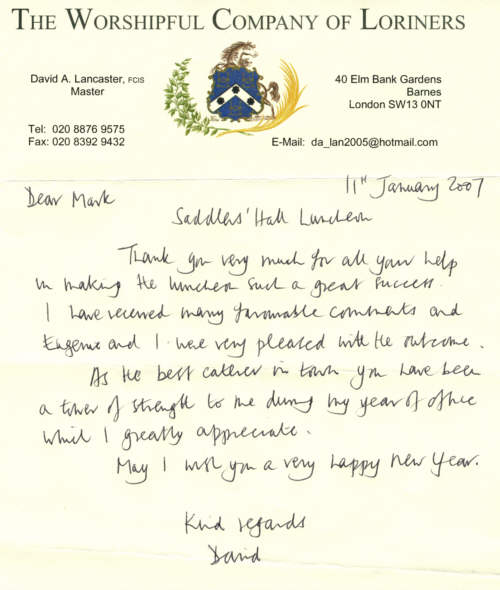 THE WORSHIPFUL COMPANY OF LORINERS
David A. Lancaster, FCIS
Master
Tel: 020 8876 9575
Fax: 020 8392 9432
40 Elm Bank Gardens
Barnes
London SW13 0NT
E-Mail: da_lan2005@hotmail.com
11th January 2007
Dear Mark
Saddlers' Hall Luncheon
Thank you very much for all your help
in making the luncheon such a great success.
I have received many favourable comments and
Eugenie and I were very pleased with the outcome.
As the best caterer in town you have been
a tower of strength to me during my year of office
which I greatly appreciate.
May I wish you a very happy new year.
Kind regards
David